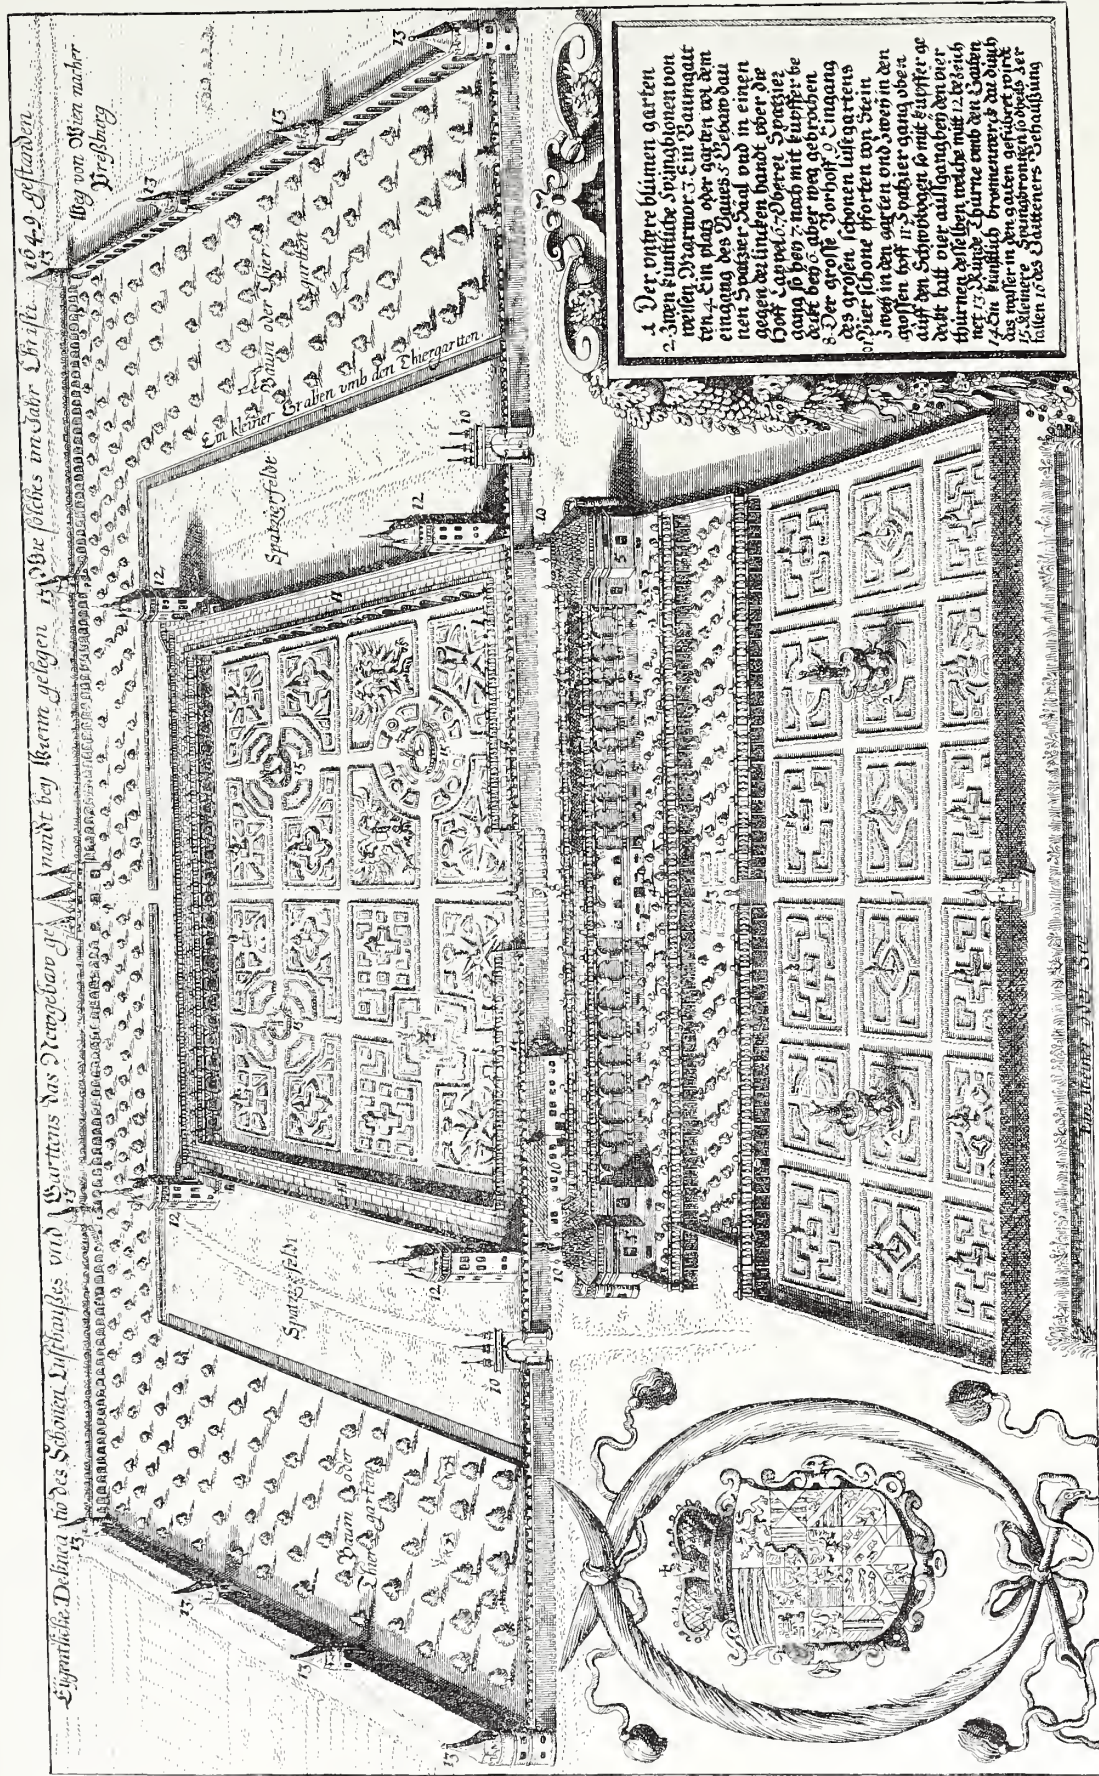 Eÿgentliche Delineatio des Schönen Lusthaußes vnd Garttens das Newgebaw genandt beÿ Wienn gelegen Wie solches im Jahr Christi 1649 gestanden
Weg von Wien nacher
Preßburg
Baum oder Thier
gartten
Ein kleiner Graben vmb den Thiergartten
Spatzierfeldt
Spatzierfeldt
Baum oder
Thiergartten
1 Der vntere blümen garten
2. Zwen künstliche Springbronen von
weisen Marmor 3. Ein Baumgart
ten 4. Ein platz ober garten wi dem
eingang des Baues 5 Gebaw dau
nen Spatzier Saal vnd in einen
gegen der lincken handt vber die
Hoff Cappel 6 7 Oberer Spatzier
gang so beÿ 7 noch mit kupffer be
deckt beÿ 6 aber weg gebrochen
8. Der grosse Vorhoff 9 Eingang
des großen schönen lustgartens
10 Vier schöne pforten von Stein
zweÿ in den garten vnd zweÿ in den
grossen hoff 11 Spatzier gang oben
auff den Schwibogen so mit kupffer ge
deckt hatt vier aussgang beÿ den vier
thurnen desselben, welche mitt 12 bezeich
net 13 Runde Thurne vmb den Garten
14 Ein künstlich bronnenwerck dardurch
das wasser in den garten geführt wirdt
15 Kleinere Springbronnen
16 des Garttners Behaußung